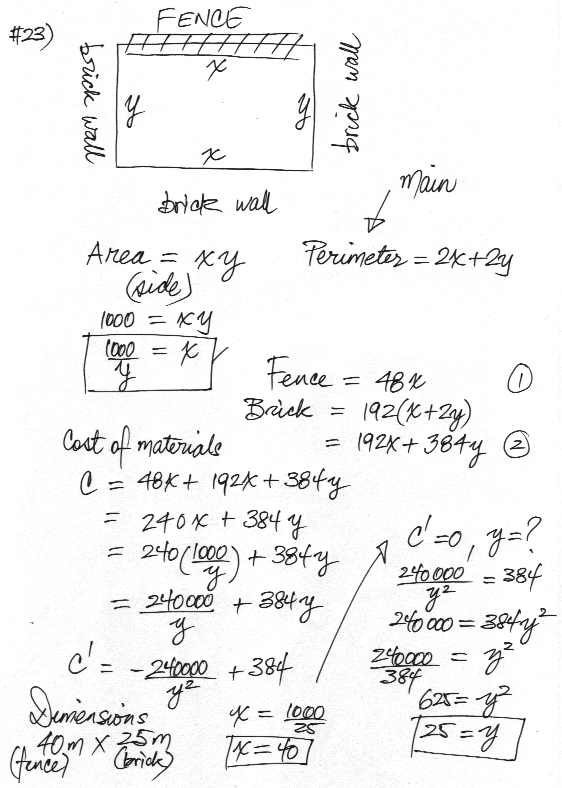 #23)
FENCE
x
brick wall
y
y
brick wall
x
brick wall
Main
Area = xy
(side)
Perimeter = 2x+2y
1000 = xy
1000/y = x
Fence = 48x ①
Brick = 192(x+2y)
= 192x + 384y ②
Cost of materials
C = 48x + 192x + 384y
= 240x + 384y
= 240(1000/y) + 384y
= 240000/y + 384y
C' = -240000/y² + 384
C'=0, y=?
240000/y² = 384
240000 = 384y²
240000/384 = y²
625 = y²
25 = y
x = 1000/25
x = 40
Dimensions
40m X 25m
(fence) (brick)